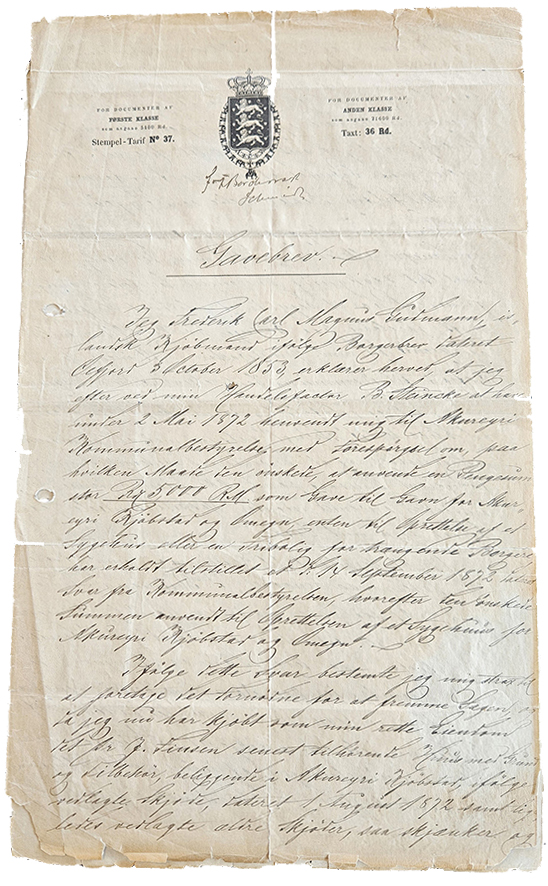 FOR DOCUMENTER AF
FØRSTE KLASSE
Stempel-Tarif Nº 37.
FOR DOCUMENTER AF
ANDEN KLASSE
Taxt: 36 Rd.
Gavebrev.
Jeg Frederik Carl Magnus Gudmann, is-
landsk Kjöbmand ifölge Borgerbrev dateret
October 1853, erklærer herved, at jeg
efter ved min Handelsfactor B. Steincke at have
under 2 Mai 1872 henvendt mig til Akureyri
Kommunalbestyrelse med Forespörgsel om, paa
hvilken Maade den önskede, at anvende en Pengesum
stor 5,000 RM som Gave til Gavn for Akur-
eyri Kjöbstad og Omegn, enten til Oprettelse af et
Sygehus eller en Fribolig for trængende Borgere
har erholdt tilstillet et d. 14 September 1872 dateret
Svar fra Kommunalbestyrelsen, hvorefter den önskede
Summen anvendt til Oprettelsen af et Sygehuus for
Akureyri Kjöbstad og Omegn.
Ifölge dette Svar bestemte jeg mig strax til
at foretage det fornödne for at fremme Sagen, og
da jeg nu har kjöbt som min rette Eiendom
det Dr J. Finsen senest tilhörende Huus med Grund
og Tilbehör, beliggende i Akureyri Kjöbstad, ifölge
vedlagte Skjöde, dateret 1 August 1872 samt lige-
ledes vedlagte ældre Skjöder, saa skjænker og